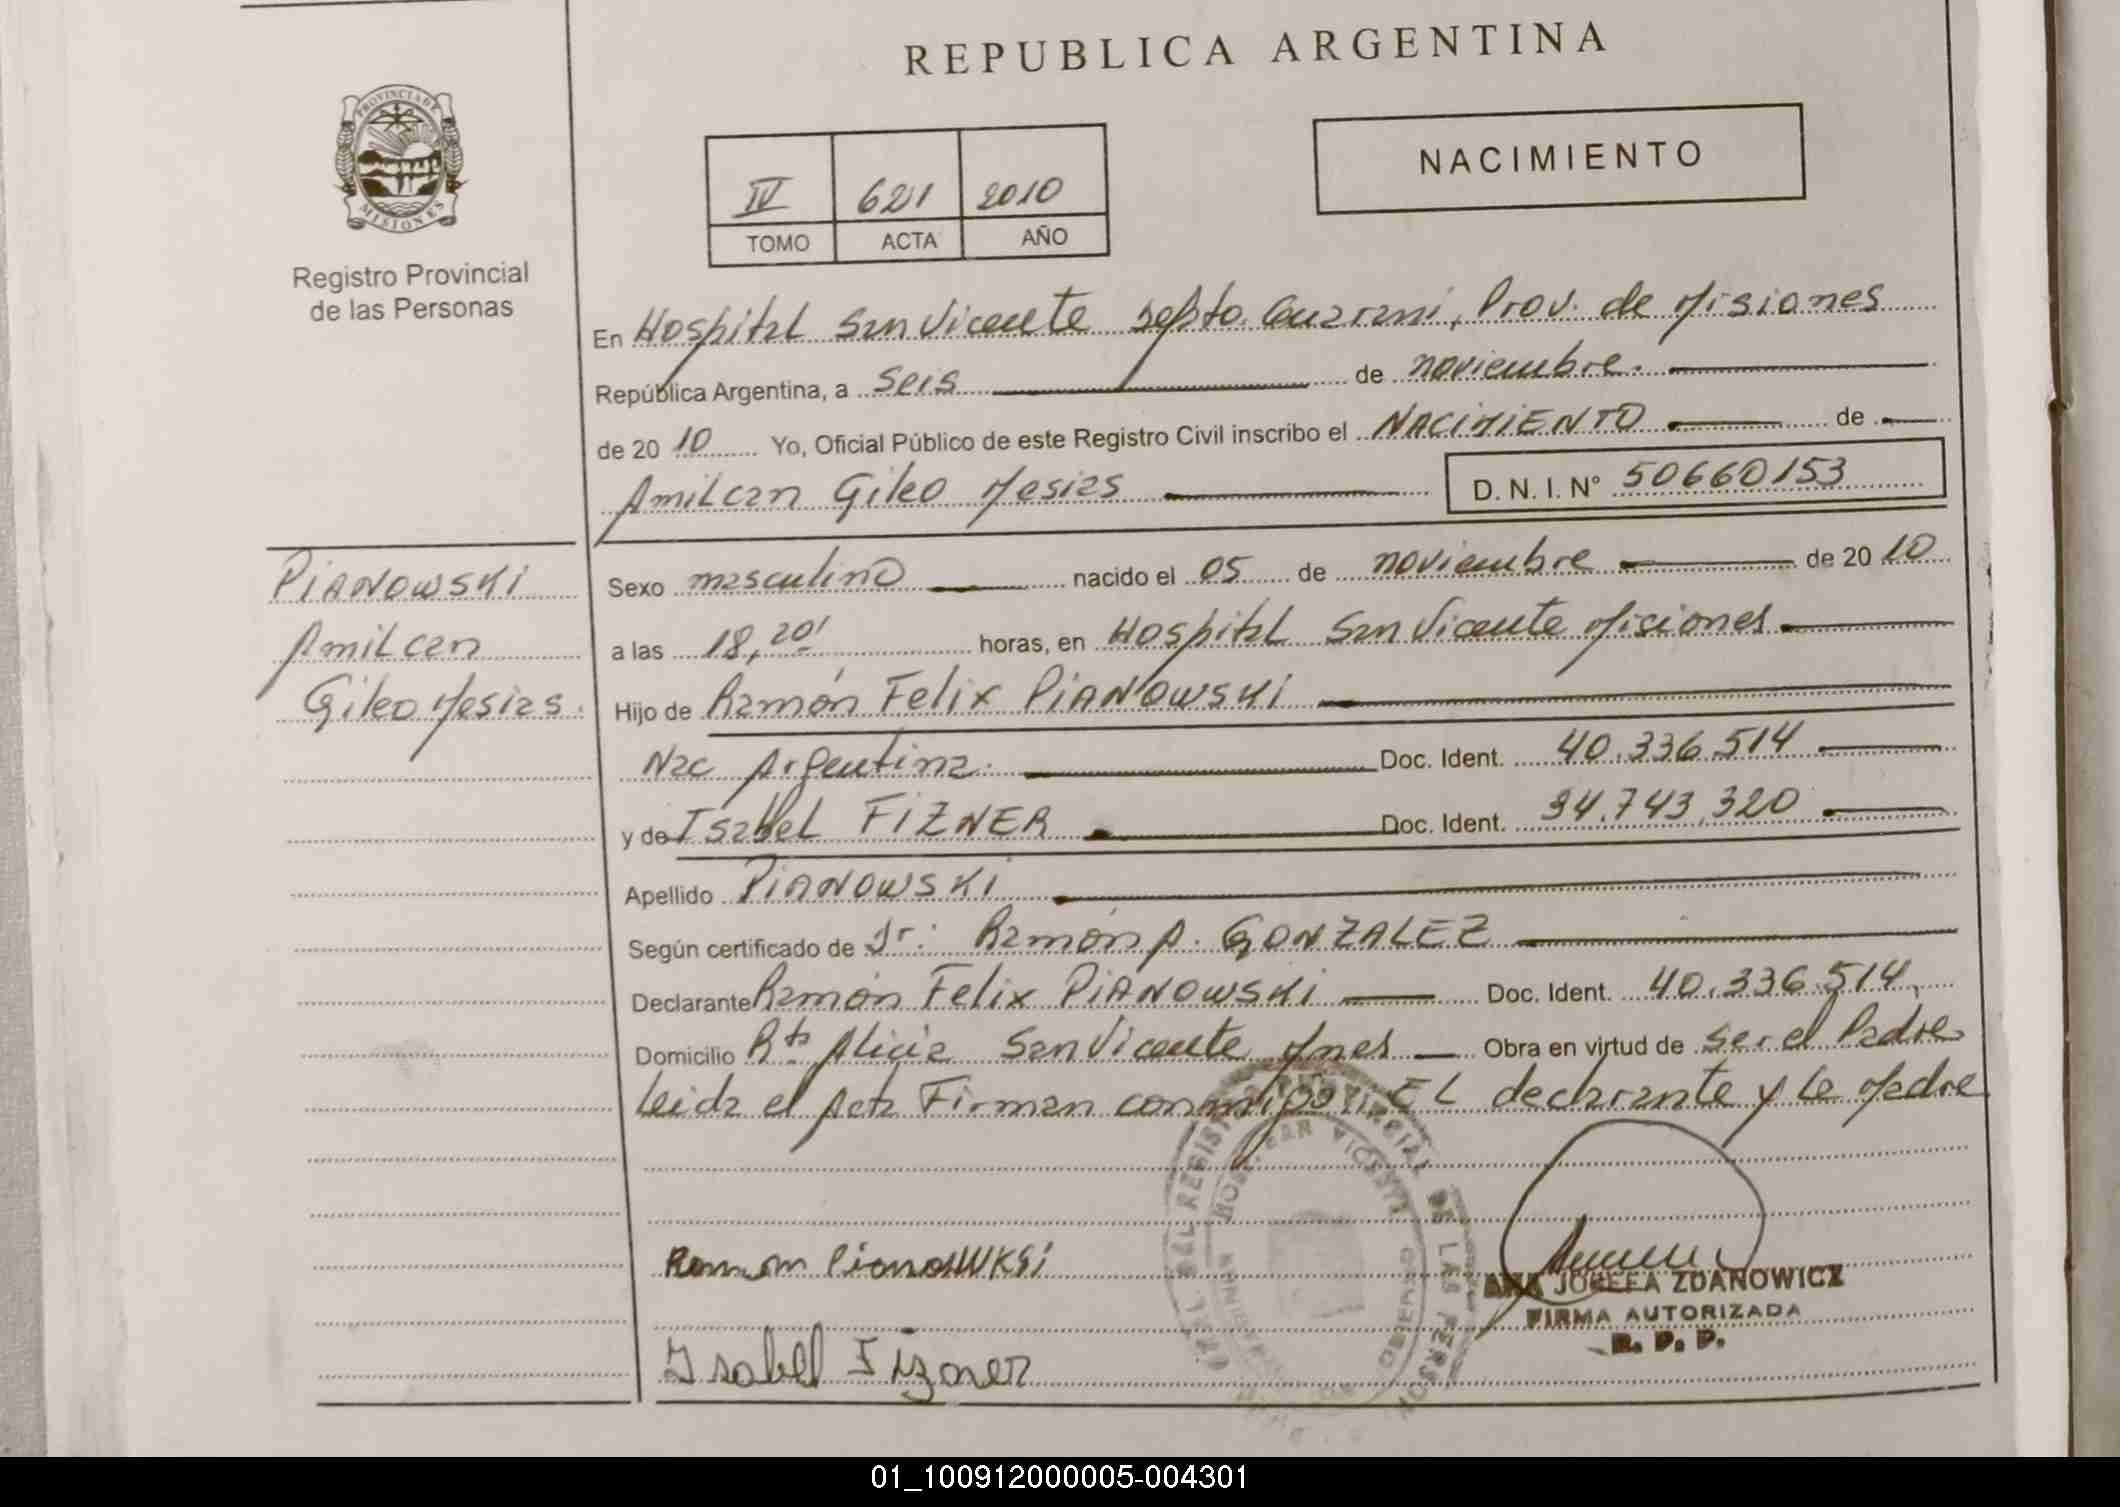 REPUBLICA ARGENTINA
PROVINCIA DE
MISIONES
Registro Provincial
de las Personas
IV 621 2010
TOMO ACTA AÑO
NACIMIENTO
En Hospital San Vicente Depto. Guarani, Prov. de Misiones
República Argentina, a seis de noviembre.
de 2010 Yo, Oficial Público de este Registro Civil inscribo el NACIMIENTO de
Amilcan Gileo Mesias D. N. I. N° 50660153
PIANOWSKI
Amilcan
Gileo Mesias.
Sexo masculino nacido el 05 de noviembre de 2010
a las 18,20' horas, en Hospital San Vicente Misiones
Hijo de Ramón Felix PIANOWSKI
Nac Argentina. Doc. Ident. 40.336.514
y de Isabel FIZNER Doc. Ident. 94.743.320
Apellido PIANOWSKI
Según certificado de Dr: Ramón A. GONZALEZ
Declarante Ramón Felix PIANOWSKI Doc. Ident. 40.336.514,
Domicilio Rta Alicia San Vicente Mnes Obra en virtud de ser el Padre
leida el Acta Firman conmigo: EL declarante y la Madre
Ramon Pianowksi
Isabel Fizner
DEL REGISTRO PROVINCIAL DE LAS PERSON
HOSP. SAN VICENTE
ANA JOSEFA ZDANOWICZ
FIRMA AUTORIZADA
R. P. P.
01_100912000005-004301